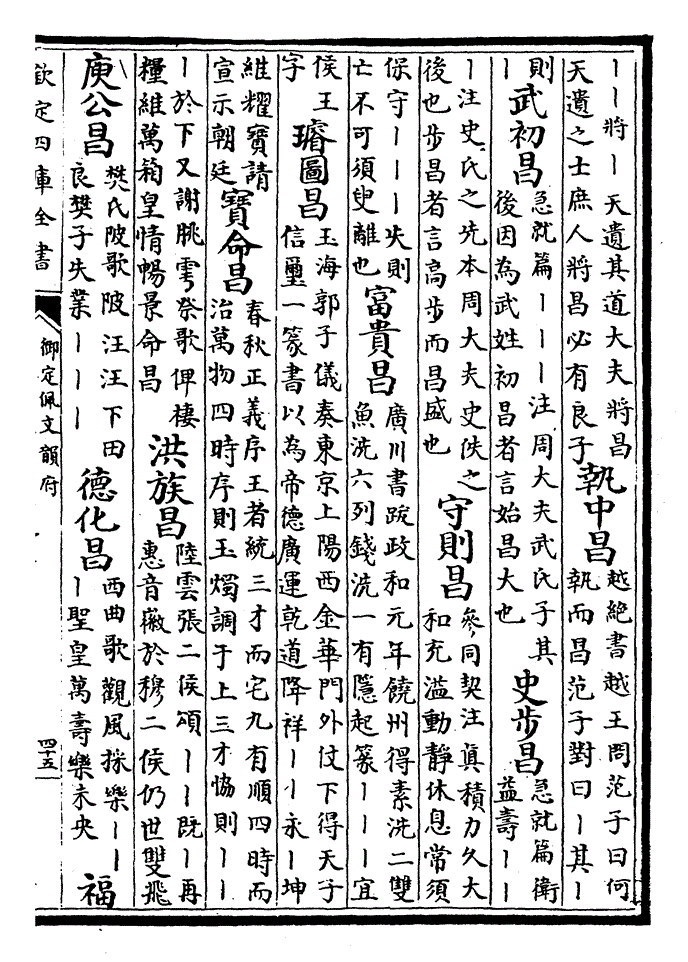 丨丨將丨 天遺其道大夫將昌
天遺之士庶人將昌必有良子
執中昌
越絶書越王問范子曰何
執而昌范子對曰丨其丨
則
丨
武初昌
急就篇丨丨丨注周大夫武氏子其
後因為武姓初昌者言始昌大也
史步昌
急就篇衛
益壽丨丨
丨注史氏之先本周大夫史佚之
後也步昌者言高步而昌盛也
守則昌
參同契注真積力久大
和充溢動靜休息常須
保守丨丨丨失則
亡不可須臾離也
富貴昌
廣川書跋政和元年饒州得素洗二雙
魚洗六列錢洗一有隱起篆丨丨丨宜
侯王
字
璿圖昌
玉海郭子儀奏東京上陽西金華門外仗下得天子
信璽一篆書以為帝德廣運乾道降祥丨丨永丨坤
維耀寶請
宣示朝廷
寶命昌
春秋正義序王者統三才而宅九有順四時而
治萬物四時序則玉燭調于上三才協則丨丨
丨於下又謝朓雩祭歌俾棲
糧維萬箱皇情暢景命昌
洪族昌
陸雲張二侯頌丨丨既丨再
惠音徽於穆二侯仍世雙飛
庾公昌
樊氏陂歌陂汪汪下田
良樊子失業丨丨丨
德化昌
西曲歌觀風採樂丨丨
丨聖皇萬壽樂未央
福
欽定四庫全書
御定佩文韻府
四十五